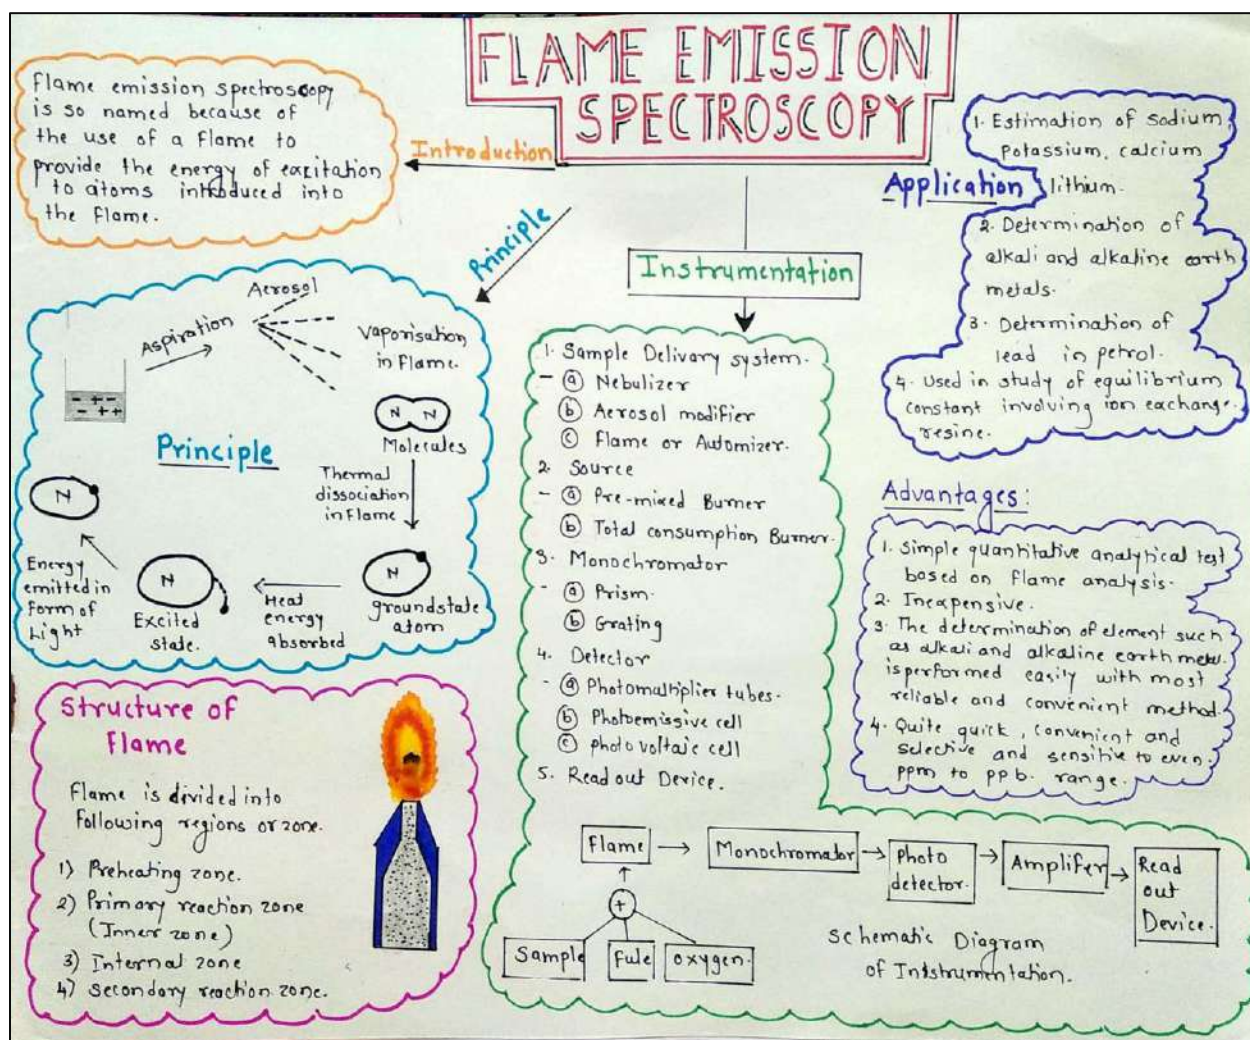 FLAME EMISSION
SPECTROSCOPY
Introduction
Flame emission spectroscopy
is so named because of
the use of a Flame to
provide the energy of excitation
to atoms introduced into
the flame.
Principle
Aspiration
Aerosol
Vaporisation
in flame.
N N
Molecules
Thermal
dissociation
in flame
N
groundstate
atom
Heat
energy
absorbed
N
Excited
state.
Energy
emitted in
form of
Light
N
Principle
Structure of
Flame
Flame is divided into
following regions or zone.
1) Preheating zone.
2) Primary reaction zone
(Inner zone)
3) Internal zone
4) secondary reaction zone.
Instrumentation
1. Sample Delivary system.
- ⓐ Nebulizer
ⓑ Aerosol modifier
ⓒ Flame or Automizer.
2. Source
- ⓐ Pre-mixed Burner
ⓑ Total consumption Burner.
3. Monochromator
- ⓐ Prism.
ⓑ Grating
4. Detector
- ⓐ Photomultiplier tubes.
ⓑ Photoemissive cell
ⓒ photo voltaic cell
5. Read out Device.
Flame
Monochromator
Photo
detector.
Amplifer
Read
out
Device.
+
Sample
Fule
oxygen.
Schematic Diagram
of Intstrumentation.
Application
1. Estimation of sodium,
Potassium, calcium
lithium.
2. Determination of
alkali and alkaline earth
metals.
3. Determination of
lead in petrol.
4. Used in study of equilibrium
constant involving ion exchange
resine.
Advantages:
1. Simple quantitative analytical test
based on flame analysis.
2. Inexpensive.
3. The determination of element such
as alkali and alkaline earth metal.
is performed easily with most
reliable and convenient method.
4. Quite quick, convenient and
selective and sensitive to even
ppm to ppb. range.